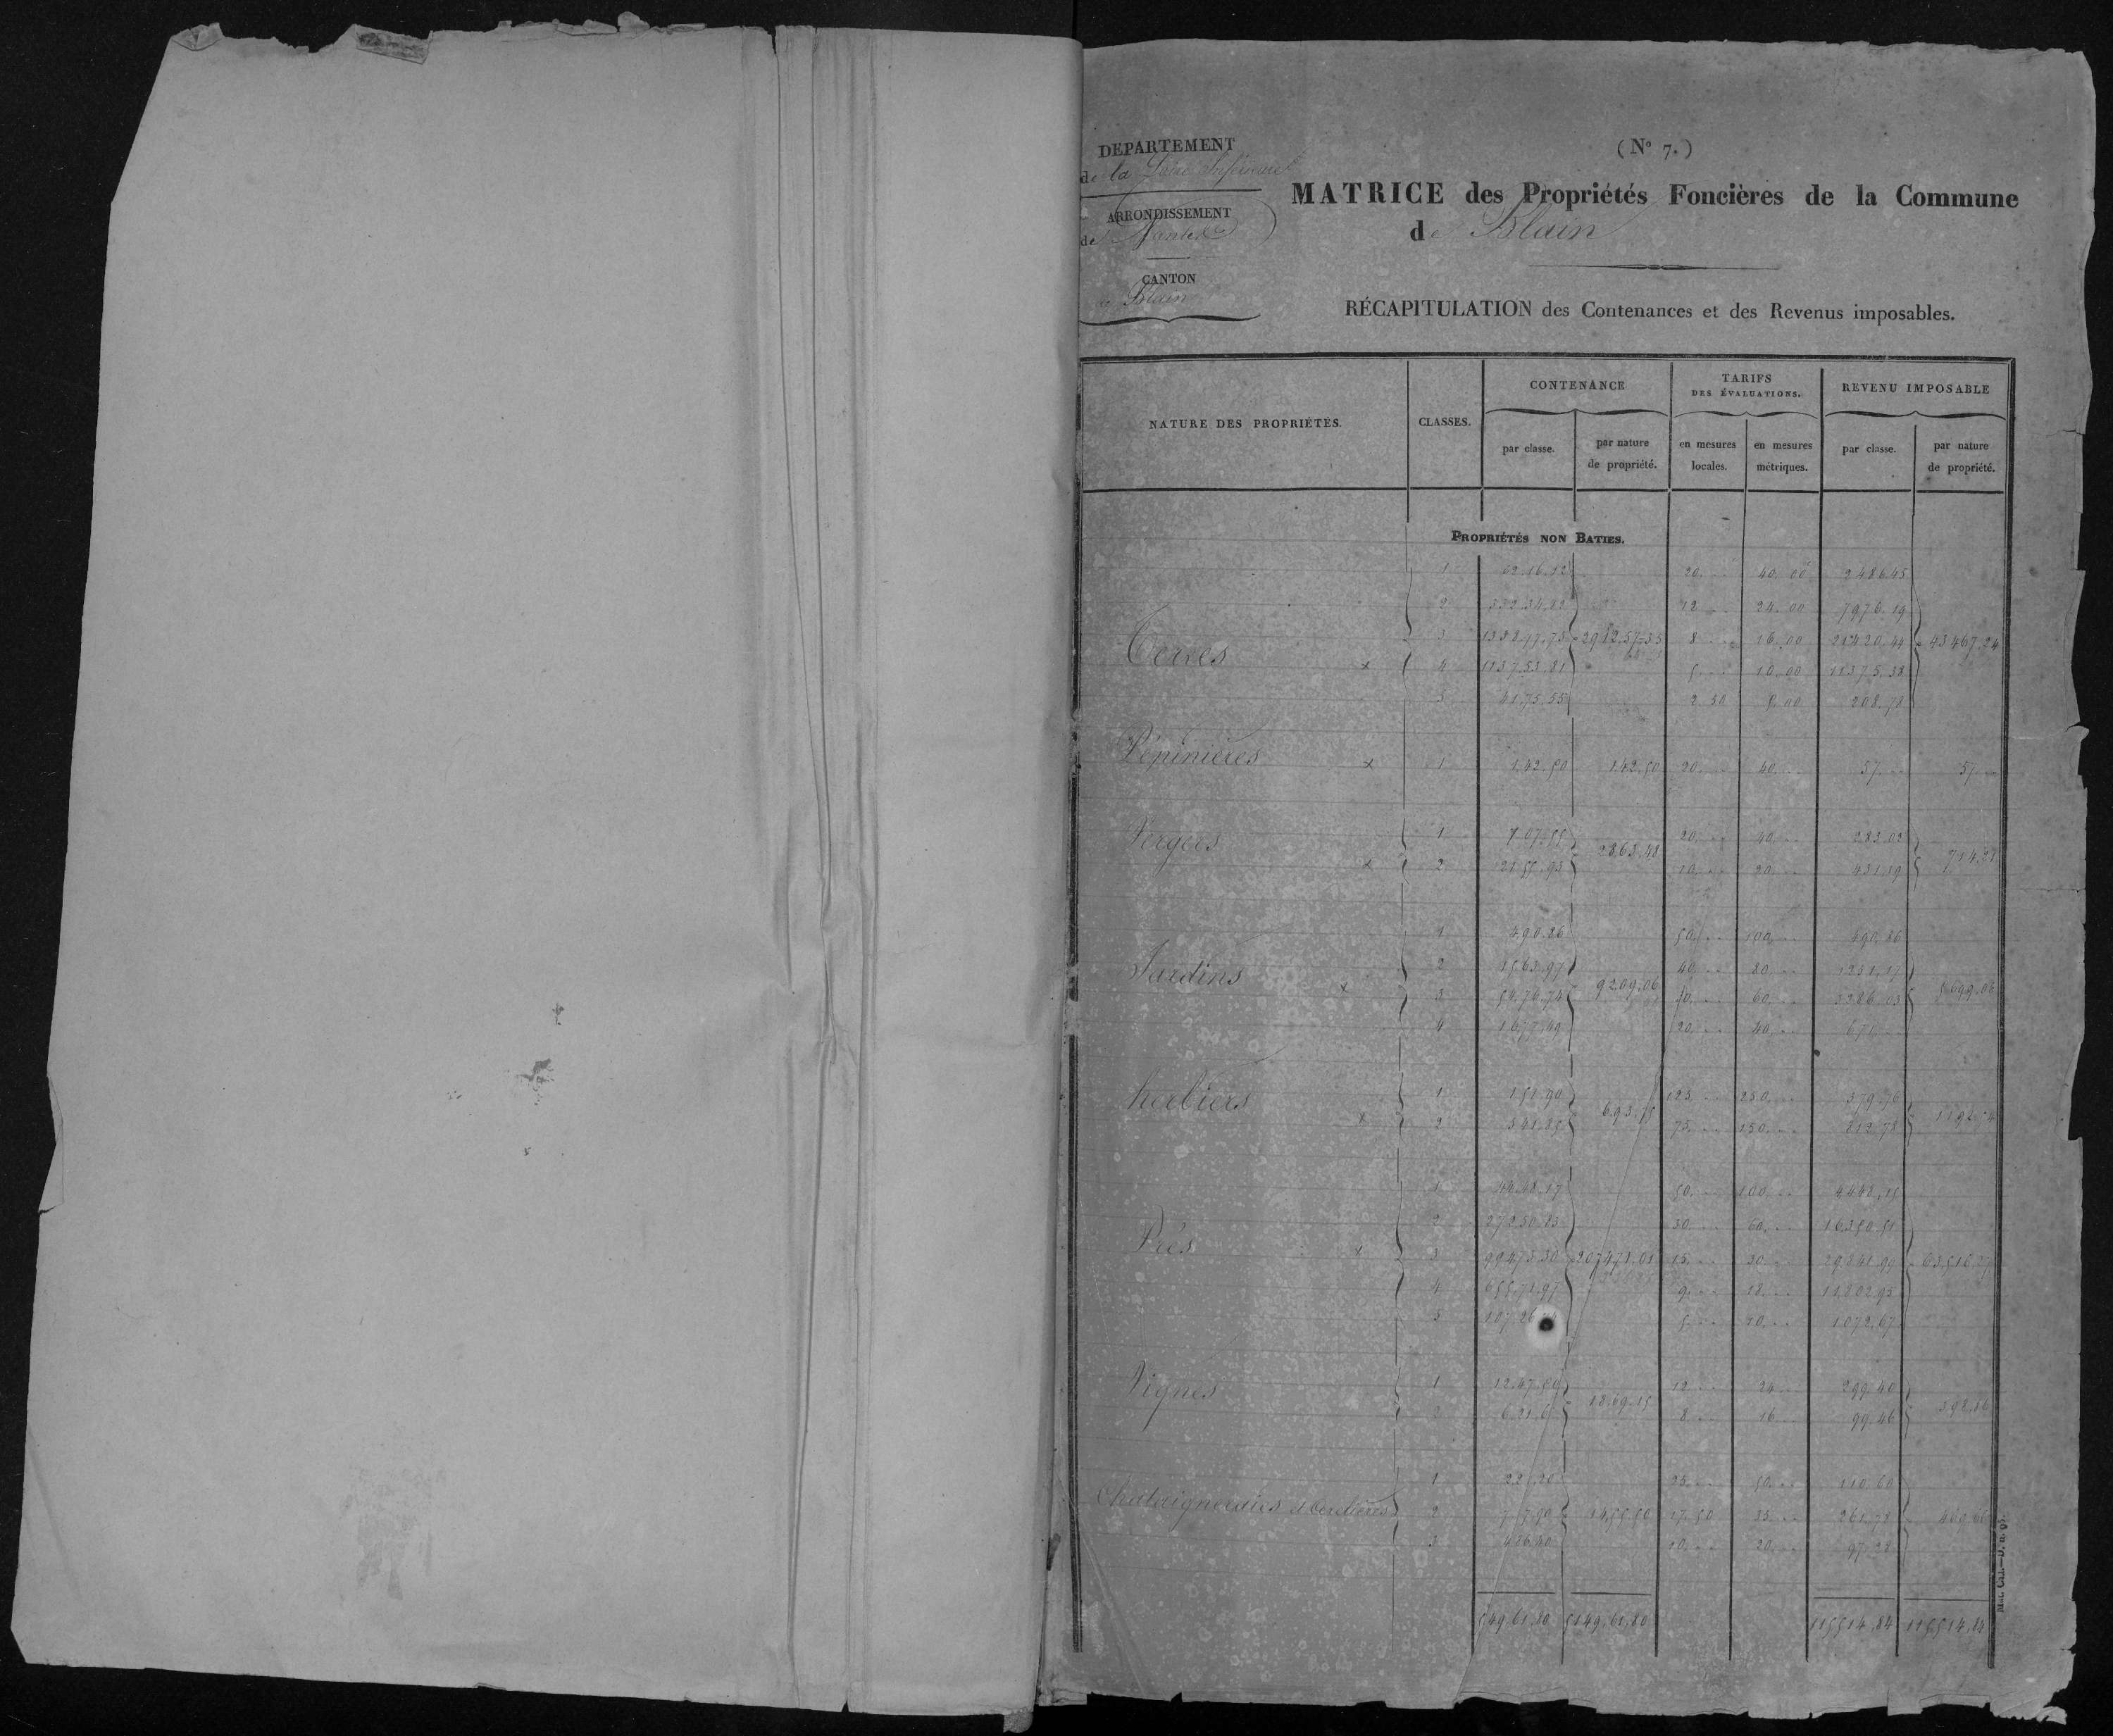 DEPARTEMENT
de la Loire Inférieure
ARRONDISSEMENT
de Nantes
CANTON
de Blain
(Nº 7.)
MATRICE des Propriétés Foncières de la Commune
de Blain
RÉCAPITULATION des Contenances et des Revenus imposables.
NATURE DES PROPRIÉTÉS. CLASSES. CONTENANCE TARIFS DES ÉVALUATIONS. REVENU IMPOSABLE
par classe. par nature de propriété. en mesures locales. en mesures métriques. par classe. par nature de propriété.
PROPRIÉTÉS NON BATIES.
1 62.16.12 20 40.00 2486.45
2 332.34.12 12 24.00 7976.19
Terres 3 2982.57.35 8 16.00 21420.44 43467.24
4 1137.53.81 5 10.00 11375.38
5 41.75.55 2.50 5.00 208.78
Pépinières 1 1.42.50 1.42.50 20 40 57 57
Vergers 1 7.07.55 28.63.48 20 40 283.02 714.21
2 21.55.93 10 20 431.19
1 4.90.86 50 100 490.86
Jardins 2 15.63.97 92.09.06 40 80 1251.17 5699.06
3 54.76.74 30 60 3286.03
4 16.77.49 20 40 671
herbiers 1 1.51.90 6.93.75 125 250 379.76 1192.54
2 5.41.85 75 150 812.78
1 44.48.17 50 100 4448.15
2 272.50.85 30 60 16350.51
Prés 3 994.73.30 2074.71.01 15 30 29841.99 63516.27
4 655.71.97 9 18 11802.95
5 107.26 5 10 1072.67
Vignes 1 12.47.50 18.69.15 12 24 299.40
2 6.21.6 8 16 99.46
1 2.21.20 25 50 110.60
Chataigneraies 2 7.47.90 14.55.50 17.50 35 261.78 469.66
3 4.86.40 10 20 97.28
5149.61.80 5149.61.80 115514.84 115514.84